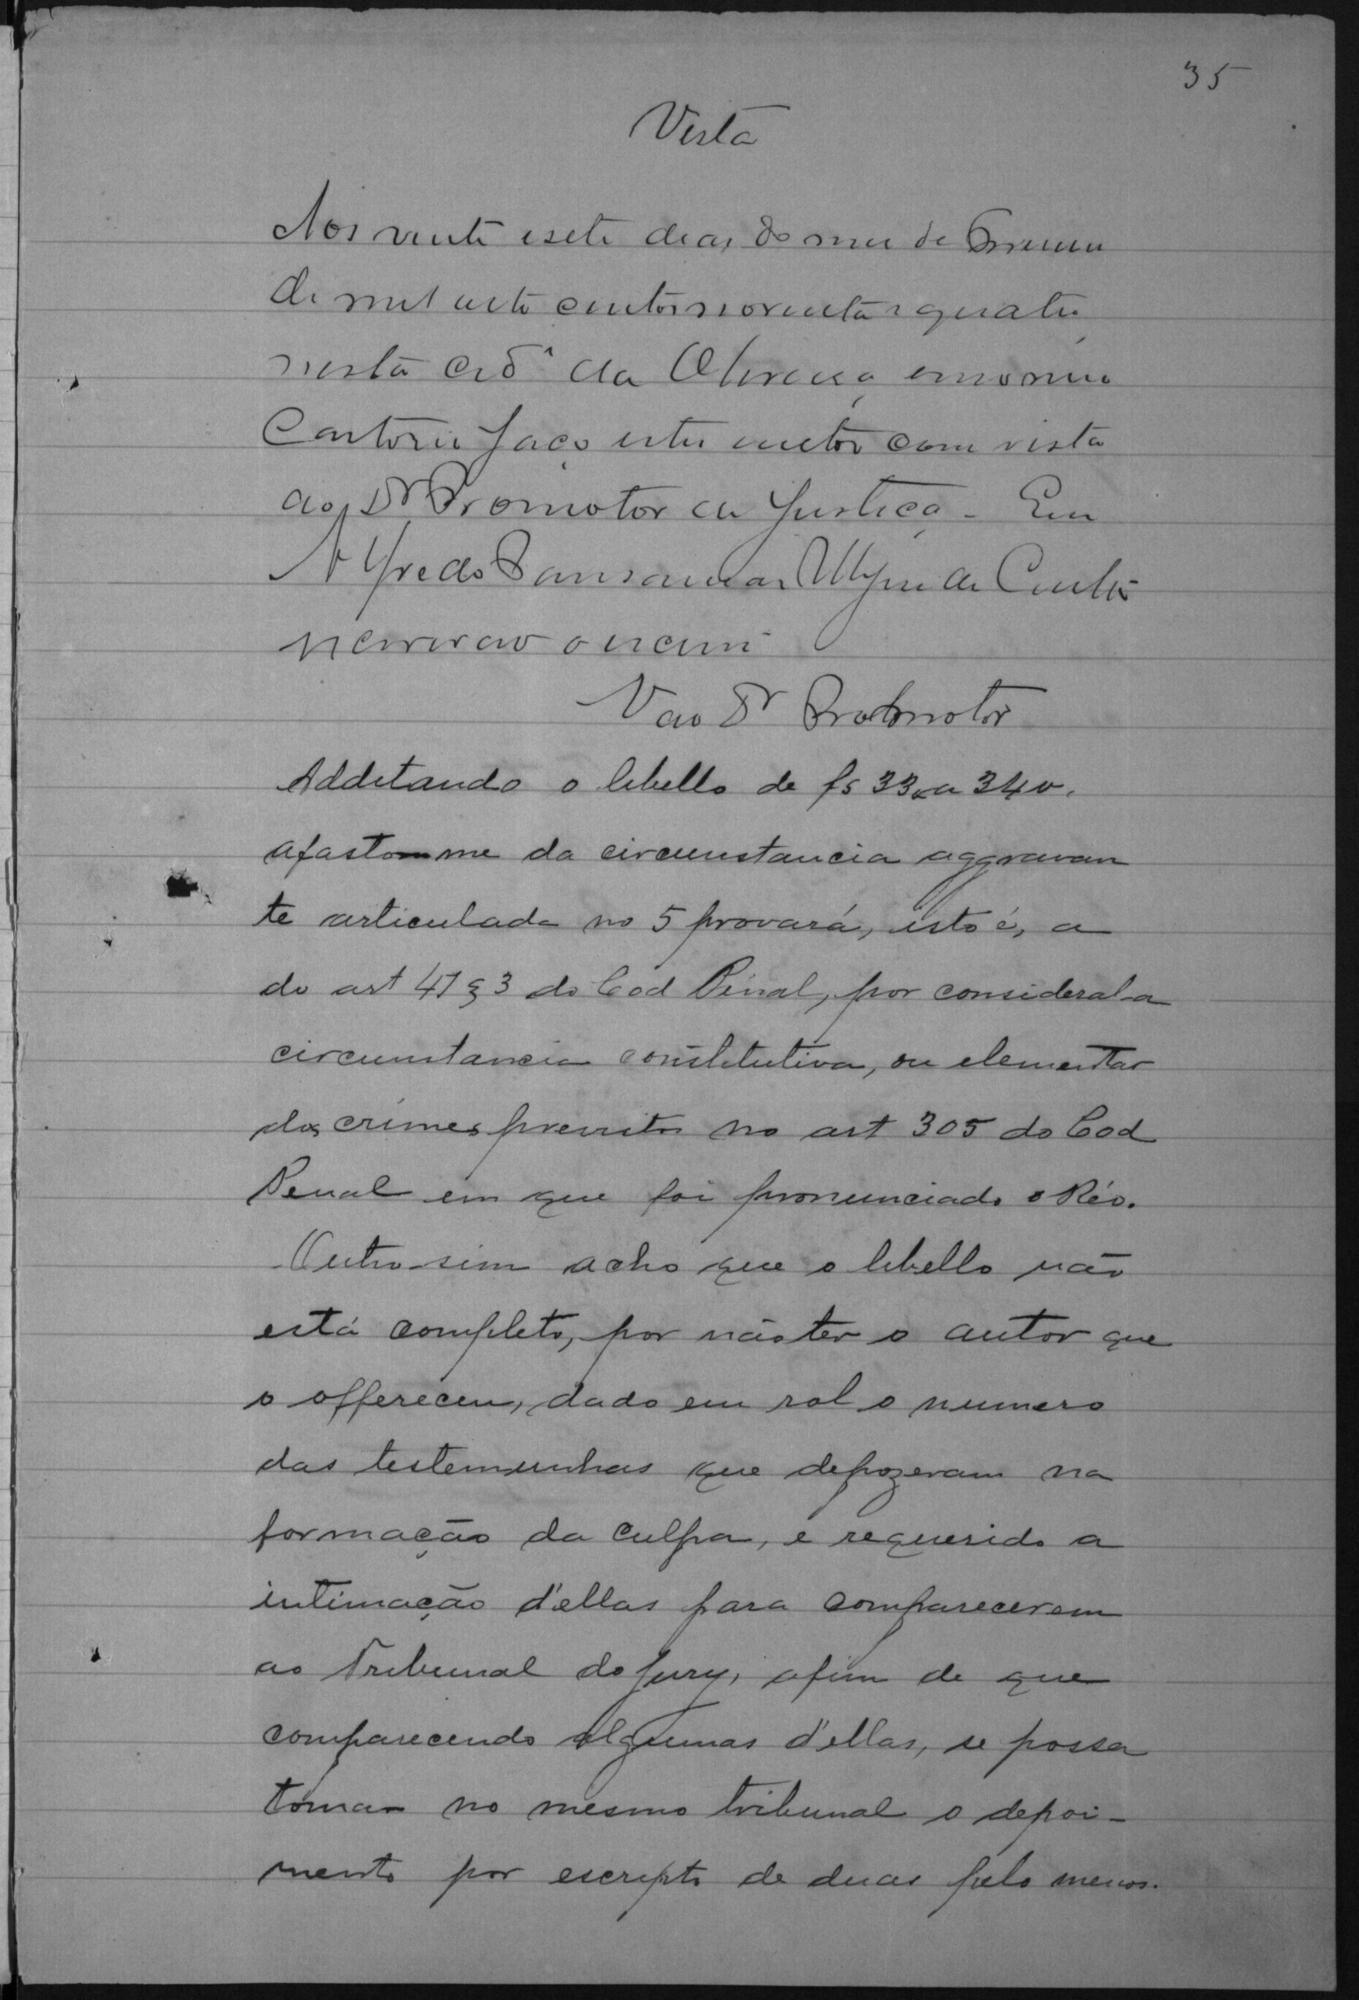 35
Vista
Aos vinte e sete dias do mez de
de mil oito centos noventa e quatro
nesta cid^e da Oliveira em o meu
Cartorio faço estes autos com vista
ao Dr Promotor da Justiça - Eu
Alfredo de
escrivão o escrevi
V ao Dr Promotor
Additando o libello de fs 33 a 34v.
afasto-me da circumstancia aggravan
te articulada no 5 provará, isto é, a
do art 41 § 3 do Cod Penal, por consideral-a
circumstancia constitutiva, ou elementar
dos crimes previstos no art 305 do Cod
Penal em que foi pronunciado o Réo.
Outro-sim acho que o libello não
está completo, por não ter o autor que
o offereceu, dado em rol o numero
das testemunhas que depozeram na
formação da culpa, e requerido a
intimação d'ellas para comparecerem
ao Tribunal do Jury, afim de que
comparecendo algumas d'ellas, se possa
tomar no mesmo tribunal o depoi-
mento por escripto de duas pelo menos.